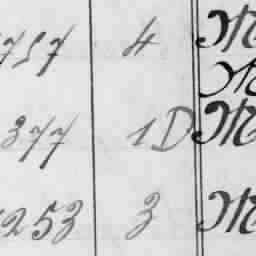 757 4 M
M
377 1D M
253 3 M